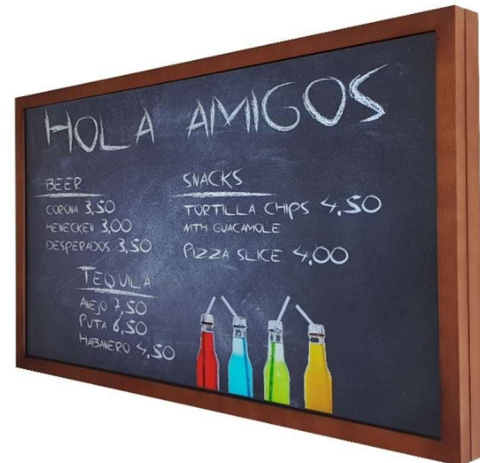 HOLA AMIGOS
BEER
CORONA 3,50
HENECKEN 3,00
DESPERADOS 3,50
TEQUILA
ANEJO 7,50
PUTA 6,50
HABANERO 4,50
SNACKS
TORTILLA CHIPS 4.50
WITH GUACAMOLE
PIZZA SLICE 4,00